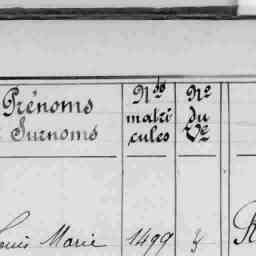 Prénoms
Surnoms
Nos
matri
cules
No
du
Vre
Louis Marie 1499